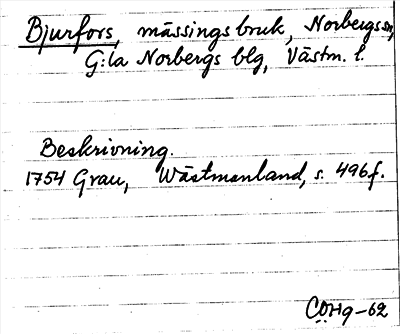 Bjurfors, mässingsbruk, Norbergs sn,
G:la Norbergs blg, Västm. l.
Beskrivning.
1754 Grau, Wästmanland, s. 496 f.
CÖHg-62